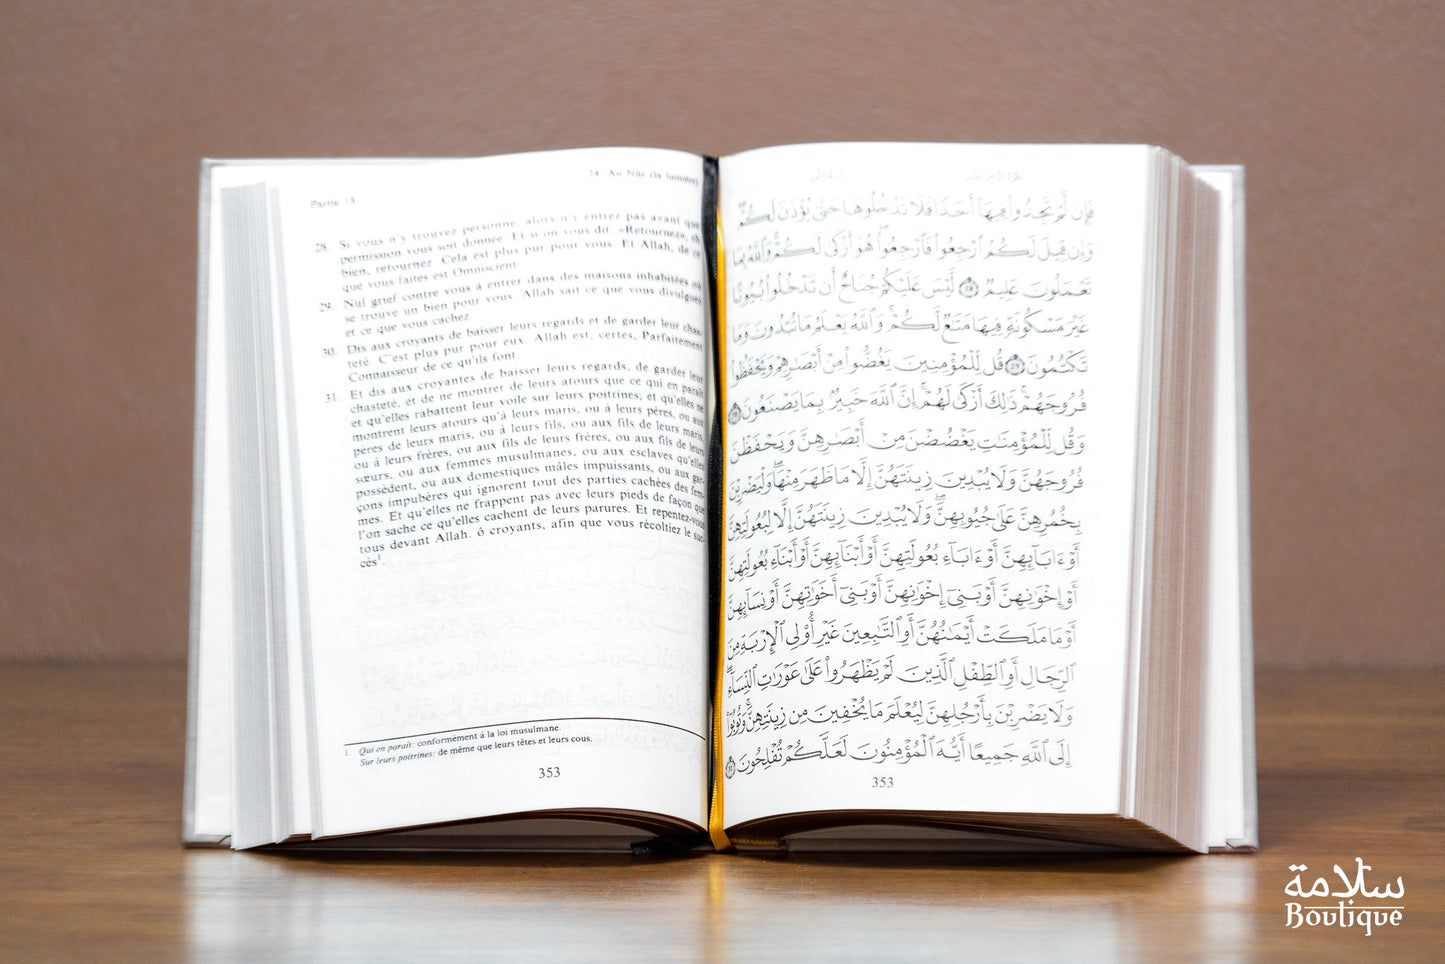 Partie 18
24. An-Nûr (la lumière)
28. Si vous n'y trouvez personne, alors n'y entrez pas avant que
permission vous soit donnée. Et si on vous dit: «Retournez», eh
bien, retournez. Cela est plus pur pour vous. Et Allah, de ce
que vous faites est Omniscient.
29. Nul grief contre vous à entrer dans des maisons inhabitées où
se trouve un bien pour vous. Allah sait ce que vous divulguez
et ce que vous cachez.
30. Dis aux croyants de baisser leurs regards et de garder leur chas-
teté. C'est plus pur pour eux. Allah est, certes, Parfaitement
Connaisseur de ce qu'ils font.
31. Et dis aux croyantes de baisser leurs regards, de garder leur
chasteté, et de ne montrer de leurs atours que ce qui en paraît
et qu'elles rabattent leur voile sur leurs poitrines; et qu'elles ne
montrent leurs atours qu'à leurs maris, ou à leurs pères, ou aux
pères de leurs maris, ou à leurs fils, ou aux fils de leurs maris,
ou à leurs frères, ou aux fils de leurs frères, ou aux fils de leurs
sœurs, ou aux femmes musulmanes, ou aux esclaves qu'elles
possèdent, ou aux domestiques mâles impuissants, ou aux gar-
çons impubères qui ignorent tout des parties cachées des fem-
mes. Et qu'elles ne frappent pas avec leurs pieds de façon que
l'on sache ce qu'elles cachent de leurs parures. Et repentez-vous
tous devant Allah, ô croyants, afin que vous récoltiez le suc-
cès¹.
1. Qui en paraît: conformément à la loi musulmane.
Sur leurs poitrines: de même que leurs têtes et leurs cous.
353
فَإِن لَّمْ تَجِدُوا۟ فِيهَآ أَحَدًا فَلَا تَدْخُلُوهَا حَتَّىٰ يُؤْذَنَ لَكُمْ ۖ
وَإِن قِيلَ لَكُمُ ٱرْجِعُوا۟ فَٱرْجِعُوا۟ ۖ هُوَ أَزْكَىٰ لَكُمْ ۚ وَٱللَّهُ بِمَا
تَعْمَلُونَ عَلِيمٌ ٢٨ لَّيْسَ عَلَيْكُمْ جُنَاحٌ أَن تَدْخُلُوا۟ بُيُوتًا
غَيْرَ مَسْكُونَةٍ فِيهَا مَتَـٰعٌ لَّكُمْ ۚ وَٱللَّهُ يَعْلَمُ مَا تُبْدُونَ وَمَا
تَكْتُمُونَ ٢٩ قُل لِّلْمُؤْمِنِينَ يَغُضُّوا۟ مِنْ أَبْصَـٰرِهِمْ وَيَحْفَظُوا۟
فُرُوجَهُمْ ۚ ذَٰلِكَ أَزْكَىٰ لَهُمْ ۗ إِنَّ ٱللَّهَ خَبِيرٌۢ بِمَا يَصْنَعُونَ ٣٠
وَقُل لِّلْمُؤْمِنَـٰتِ يَغْضُضْنَ مِنْ أَبْصَـٰرِهِنَّ وَيَحْفَظْنَ
فُرُوجَهُنَّ وَلَا يُبْدِينَ زِينَتَهُنَّ إِلَّا مَا ظَهَرَ مِنْهَا ۖ وَلْيَضْرِبْنَ
بِخُمُرِهِنَّ عَلَىٰ جُيُوبِهِنَّ ۖ وَلَا يُبْدِينَ زِينَتَهُنَّ إِلَّا لِبُعُولَتِهِنَّ
أَوْ ءَابَآئِهِنَّ أَوْ ءَابَآءِ بُعُولَتِهِنَّ أَوْ أَبْنَآئِهِنَّ أَوْ أَبْنَآءِ بُعُولَتِهِنَّ
أَوْ إِخْوَٰنِهِنَّ أَوْ بَنِىٓ إِخْوَٰنِهِنَّ أَوْ بَنِىٓ أَخَوَٰتِهِنَّ أَوْ نِسَآئِهِنَّ
أَوْ مَا مَلَكَتْ أَيْمَـٰنُهُنَّ أَوِ ٱلتَّـٰبِعِينَ غَيْرِ أُو۟لِى ٱلْإِرْبَةِ مِنَ
ٱلرِّجَالِ أَوِ ٱلطِّفْلِ ٱلَّذِينَ لَمْ يَظْهَرُوا۟ عَلَىٰ عَوْرَٰتِ ٱلنِّسَآءِ ۖ
وَلَا يَضْرِبْنَ بِأَرْجُلِهِنَّ لِيُعْلَمَ مَا يُخْفِينَ مِن زِينَتِهِنَّ ۚ وَتُوبُوٓا۟
إِلَى ٱللَّهِ جَمِيعًا أَيُّهَ ٱلْمُؤْمِنُونَ لَعَلَّكُمْ تُفْلِحُونَ ٣١
353
سلامة
Boutique